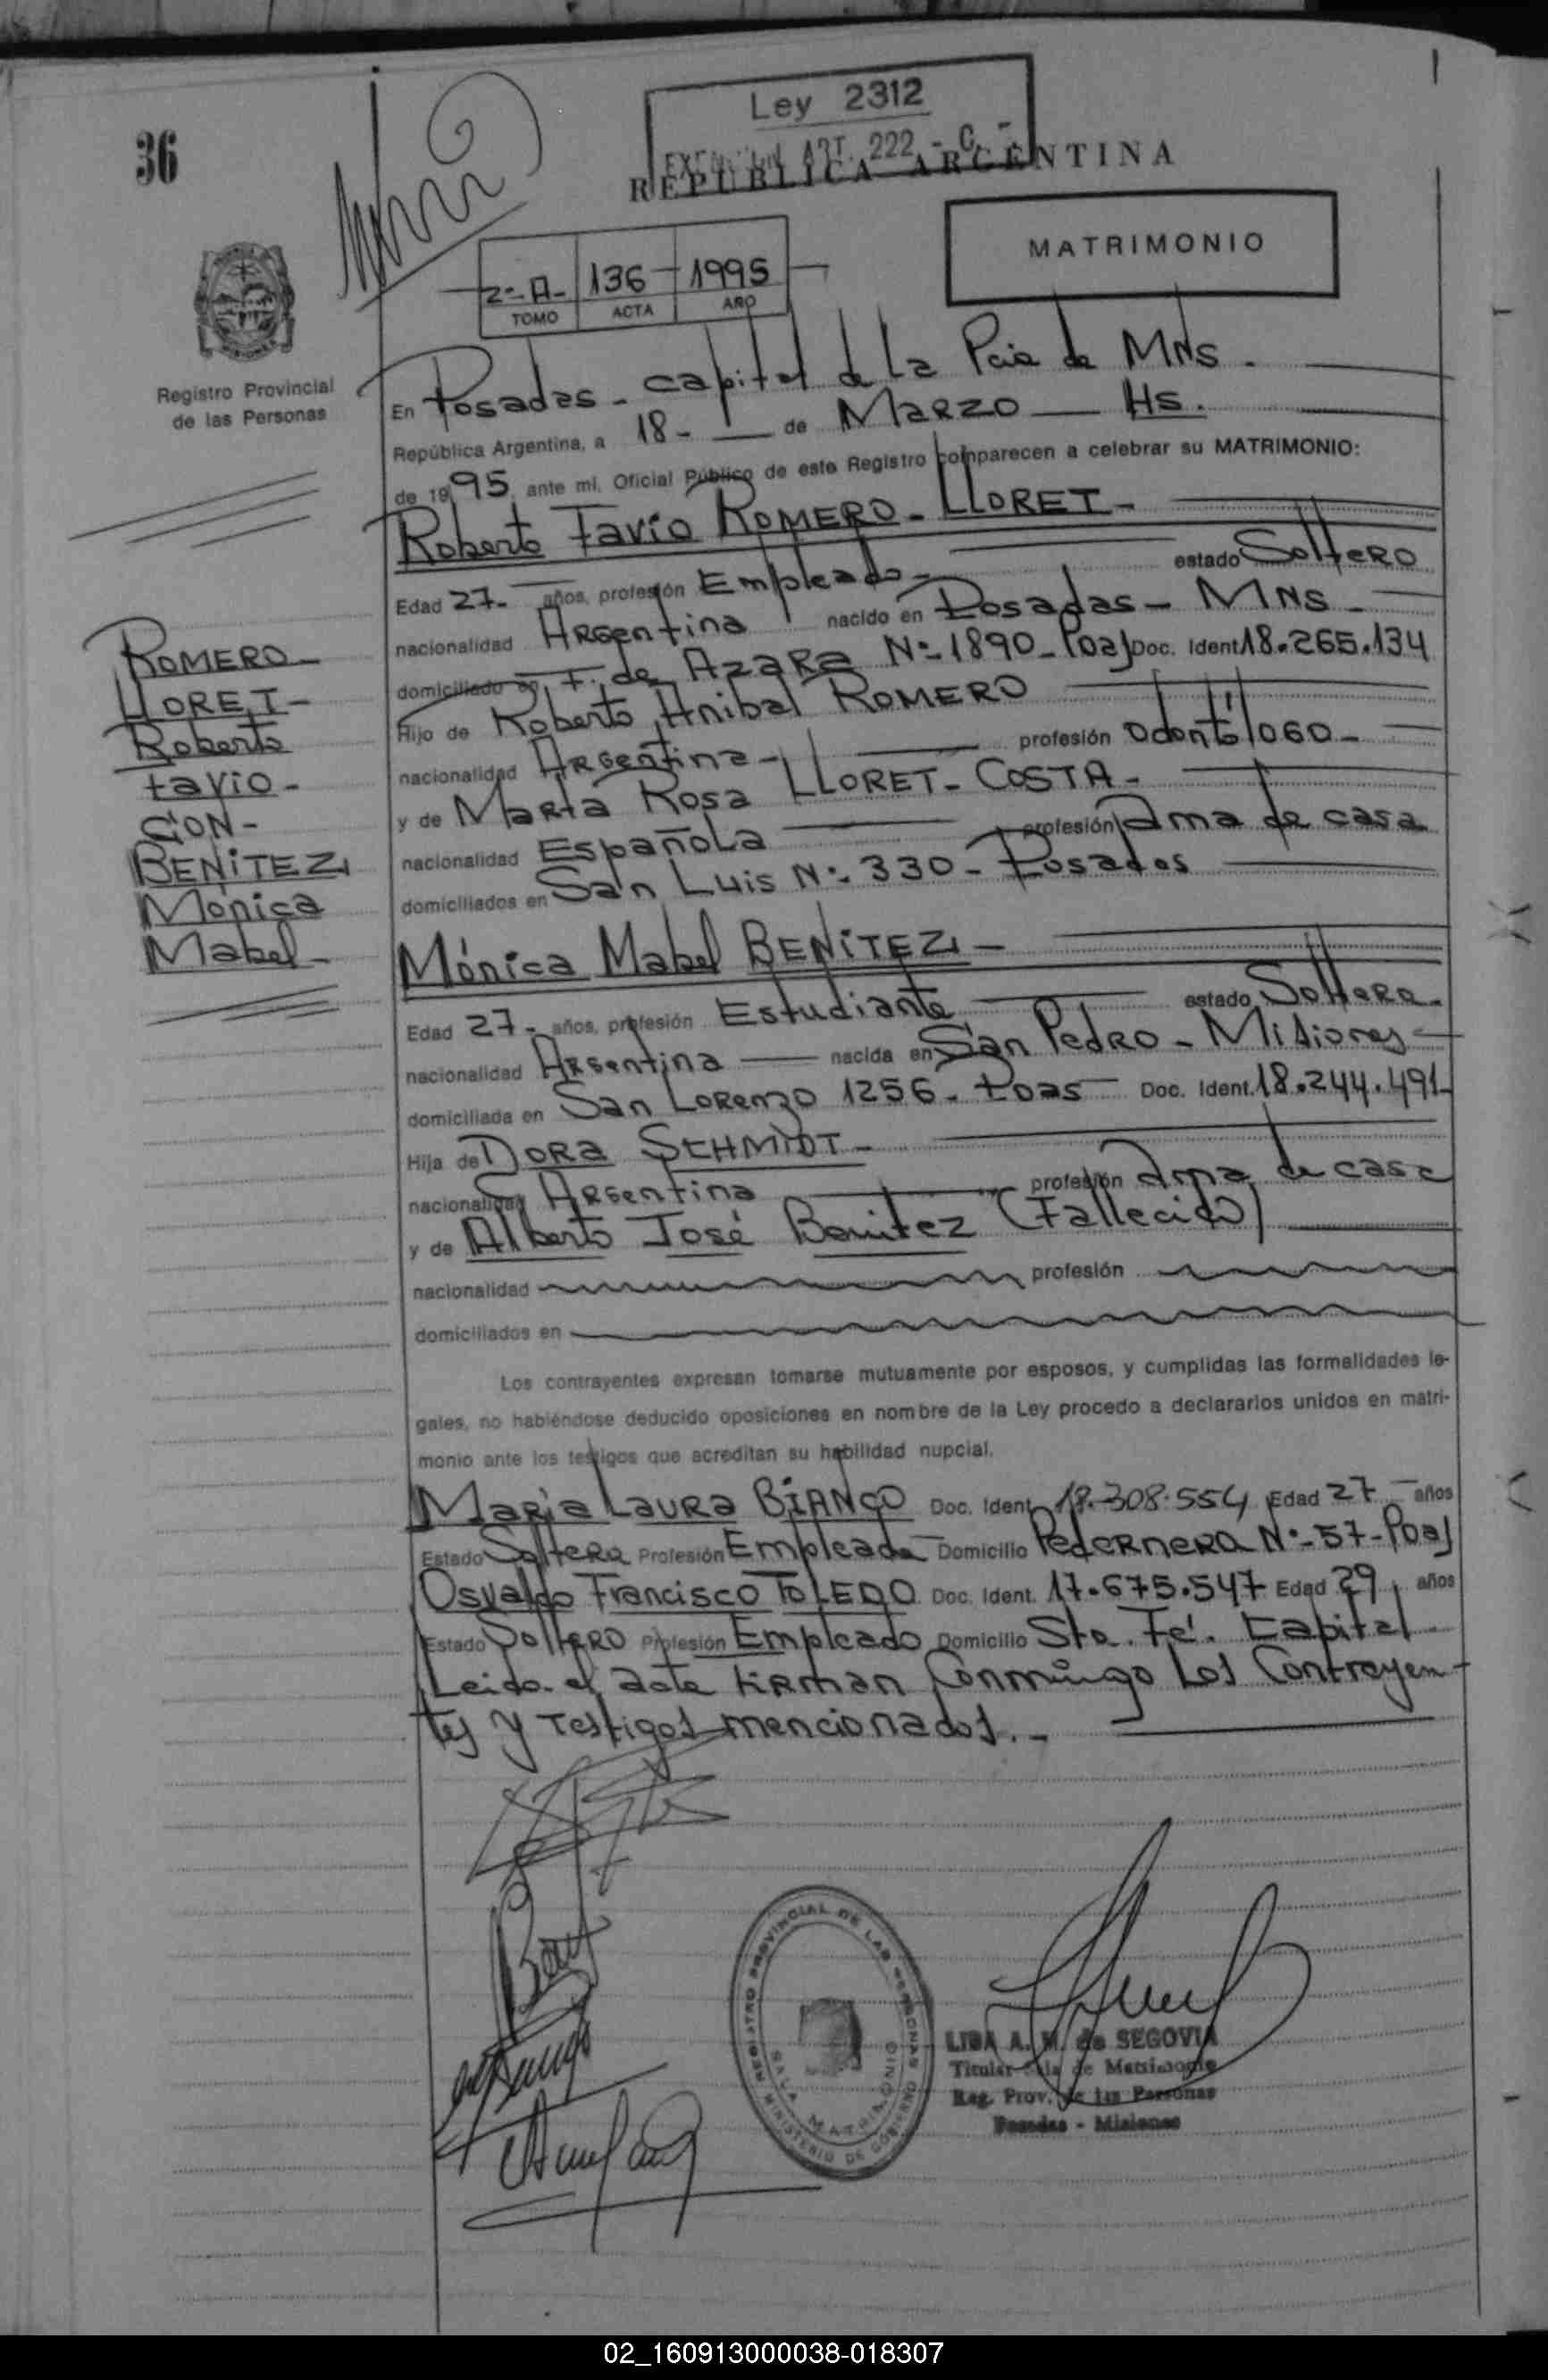 Ley 2312
EXENCION ART. 222 - C. -
36
REPUBLICA ARGENTINA
MATRIMONIO
2º- A- 136 - 1995
TOMO ACTA AÑO
Registro Provincial
de las Personas
En Posadas - capital de la Pcia de MNS. -
República Argentina, a 18 - de Marzo - Hs.
de 1995 ante mí, Oficial Público de este Registro comparecen a celebrar su MATRIMONIO:
Roberto Favio ROMERO - LLORET -
Edad 27 - años, profesión Empleado - estado Soltero
nacionalidad Argentina nacido en Posadas - MNS -
domiciliado en F. de Azara Nº- 1890 - Pdas Doc. Ident 18.265.134
Hijo de Roberto Anibal ROMERO
nacionalidad Argentina - profesión Odontólogo -
y de Marta Rosa LLORET - COSTA -
nacionalidad Española profesión Ama de casa
domiciliados en San Luis Nº- 330 - Posadas
Mónica Mabel BENITEZ -
Edad 27 - años, profesión Estudiante estado Soltera -
nacionalidad Argentina nacida en San Pedro - Misiones -
domiciliada en San Lorenzo 1256 - Pdas Doc. Ident. 18.244.491-
Hija de DORA SCHMIDT -
nacionalidad Argentina profesión Ama de casa
y de Alberto José Benitez (Fallecido)
nacionalidad profesión
domiciliados en
ROMERO -
LLORET -
Roberto
Favio -
CON -
BENITEZ
Mónica
Mabel -
Los contrayentes expresan tomarse mutuamente por esposos, y cumplidas las formalidades le-
gales, no habiéndose deducido oposiciones en nombre de la Ley procedo a declararlos unidos en matri-
monio ante los testigos que acreditan su habilidad nupcial.
Maria Laura BIANCO Doc. Ident 18.308.554 Edad 27 - años
Estado Soltera Profesión Empleada Domicilio Pedernera Nº- 57 - Pdas
Osvaldo Francisco TOLEDO Doc. Ident. 17.675.547 Edad 29 años
Estado Soltero Profesión Empleado Domicilio Sta. Fé. Capital
Leido el acta firman conmigo los contrayen-
tes y testigos mencionados. -
REGISTRO PROVINCIAL DE LAS PERSONAS
SALA MATRIMONIO
MINISTERIO DE GOBIERNO
LIDA A. M. de SEGOVIA
Titular Sala de Matrimonio
Reg. Prov. de las Personas
Posadas - Misiones
02_160913000038-018307